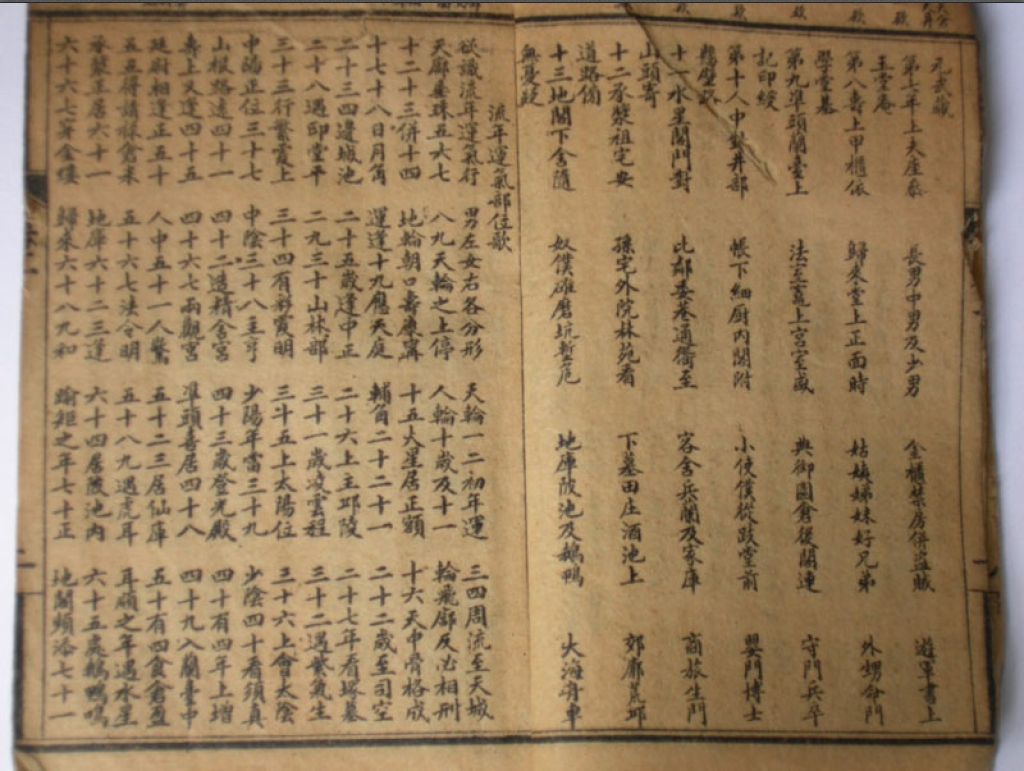 元武藏
第七年上夫座參 長男中男及少男 金櫃禁房併盜賊 遊軍書上
玉堂庵
第八壽上甲櫃依 歸來堂上正面時 姑姨姊妹好兄弟 外甥命門
學堂基
第九準頭蘭臺上 法令竈上宮室盛 典御園倉後閣連 守門兵卒
記印綬
第十人中對井部 帳下細廚內閣附 小使僕從跂堂前 嬰門博士
懸壁路
十一水星閣門對 比鄰委巷通衢至 客舍兵蘭及家庫 商旅生門
山頭寄
十二承漿祖宅安 孫宅外院林苑看 下墓田庄酒池上 郊廓荒邱
道路傍
十三地閣下舍隨 奴僕碓磨坑塹危 地庫陂池及鵝鴨 大海舟車
無憂疑
流年運氣部位歌
欲識流年運氣行 男左女右各分形 天輪一二初年運 三四周流至天城
天廓垂珠五六七 八九天輪之上停 人輪十歲及十一 輪飛廓反必相刑
十二十三併十四 地輪朝口壽康寧 十五火星居正額 十六天中骨格成
十七十八日月角 運逢十九應天庭 輔角二十二十一 二十二歲至司空
二十三四邊城池 二十五歲逢中正 二十六上主邱陵 二十七年看塚墓
二十八遇印堂平 二九三十山林部 三十一歲凌雲程 三十二遇紫氣生
三十三行繁霞上 三十四有彩霞明 三十五上太陽位 三十六上會太陰
中陽正位三十七 中陰三十八主亨 少陽年當三十九 少陰四十看須真
山根路遠四十一 四十二造精舍宮 四十三歲登光殿 四十有四年上增
壽上又逢四十五 四十六七兩觀宮 準頭喜居四十八 四十九入蘭臺中
廷尉相逢正五十 人中五十一人驚 五十二三居仙庫 五十有四食倉盈
五五得請祿倉米 五十六七法令明 五十八九遇虎耳 耳順之年遇水星
承漿正居六十一 地庫六十二三逢 六十四居陂池內 六十五處鵝鴨鳴
六十六七穿金縷 歸來六十八九和 踰矩之年七十正 地閣頻添七十一